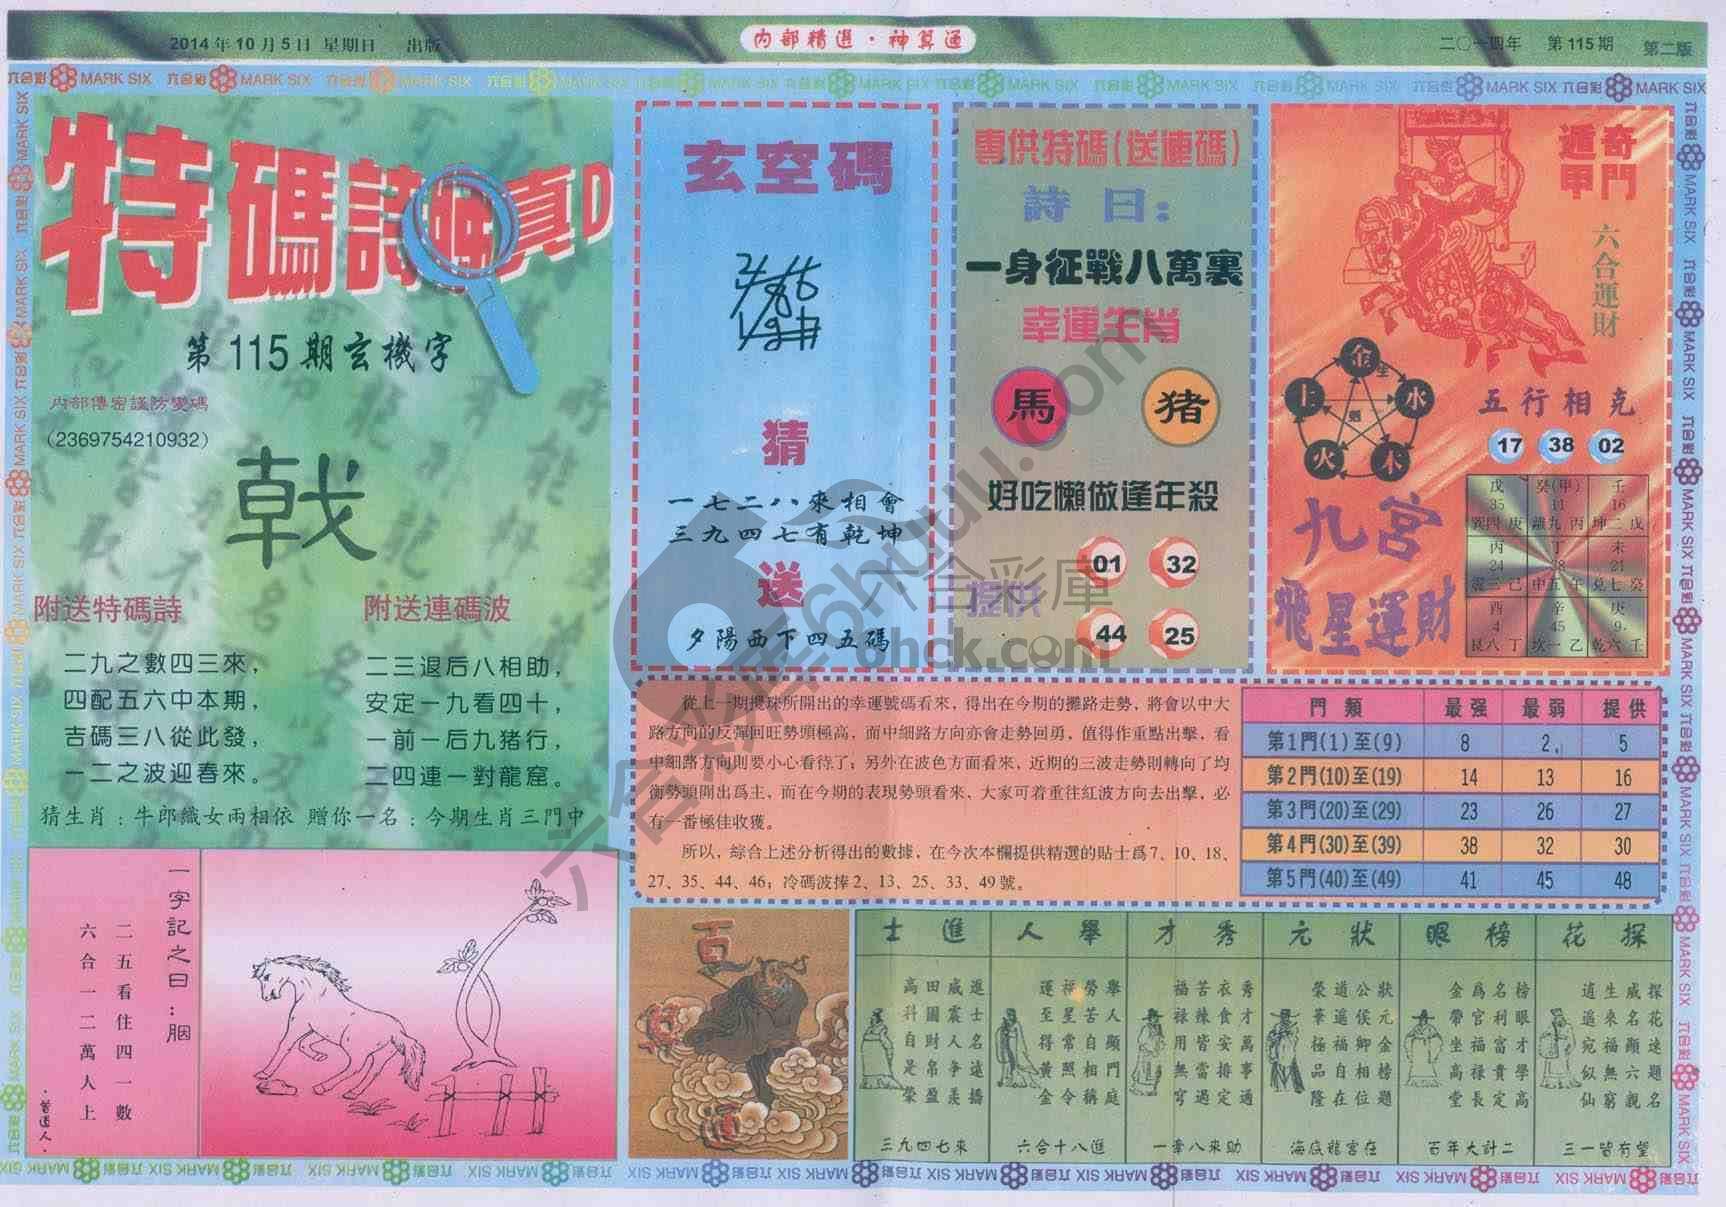 2014年10月5日 星期日 出版
内部精選·神算通
二〇一四年 第115期 第二版
六合彩 MARK SIX
特碼詩
真D
第115期玄機字
内部傳密謹防變碼
(2369754210932)
附送特碼詩
二九之數四三來，
四配五六中本期，
吉碼三八從此發，
一二之波迎春來。
附送連碼波
二三退后八相助，
安定一九看四十，
一前一后九猪行，
二四連一對龍窟。
猜生肖：牛郎織女兩相依 贈你一名：今期生肖三門中
一字記之曰：胭
二五看住四一數
六合一二萬人上
·曾道人·
玄空碼
猜
一七二八來相會
三九四七有乾坤
送
夕陽西下四五碼
專供特碼(送連碼)
詩曰：
一身征戰八萬裏
幸運生肖
馬 猪
好吃懶做逢年殺
提供
01 32
44 25
奇門
遁甲
六合運財
金
水
木
火
土
五行相克
17 38 02
九宮
飛星運財
戊 癸(甲) 壬
35 11 16
巽四 庚 離九 丙 坤二 戊
丙 丁 未
24 18 21
震三 己 中五 午 兑七 癸
酉 辛 庚
4 45 9
艮八 丁 坎一 乙 乾六 壬
從上一期攪珠所開出的幸運號碼看來，得出在今期的攤路走勢，將會以中大
路方向的反彈回旺勢頭極高，而中細路方向亦會走勢回勇，值得作重點出擊，看
中細路方向則要小心看待了；另外在波色方面看來，近期的三波走勢則轉向了均
衡勢頭開出爲主，而在今期的表現勢頭看來，大家可着重往紅波方向去出擊，必
有一番極佳收獲。
所以，綜合上述分析得出的數據，在今次本欄提供精選的貼士爲7、10、18、
27、35、44、46；冷碼波捧2、13、25、33、49號。
門類 最强 最弱 提供
第1門(1)至(9) 8 2 5
第2門(10)至(19) 14 13 16
第3門(20)至(29) 23 26 27
第4門(30)至(39) 38 32 30
第5門(40)至(49) 41 45 48
百
道
士進
進士名遠播
威震人争羨
田圓財帛盈
高科自是榮
三九四七來
人舉
舉人顯門庭
勞苦自相稱
福星常照令
運至得黄金
六合十八進
才秀
秀才萬事通
衣食安排定
苦辣皆當過
福禄用無窮
一牽八來助
元狀
狀元金榜題
公侯卿相位
道遥福自在
榮筆極品隆
海底龍宮在
眼榜
榜眼才學高
名利富貴定
爲官福禄長
金帶坐高堂
百年大計二
花探
探花速題名
威名顯六親
生來福無窮
逍遥宛似仙
三一皆有望
六合彩庫
6hpdu.com
6hck.com